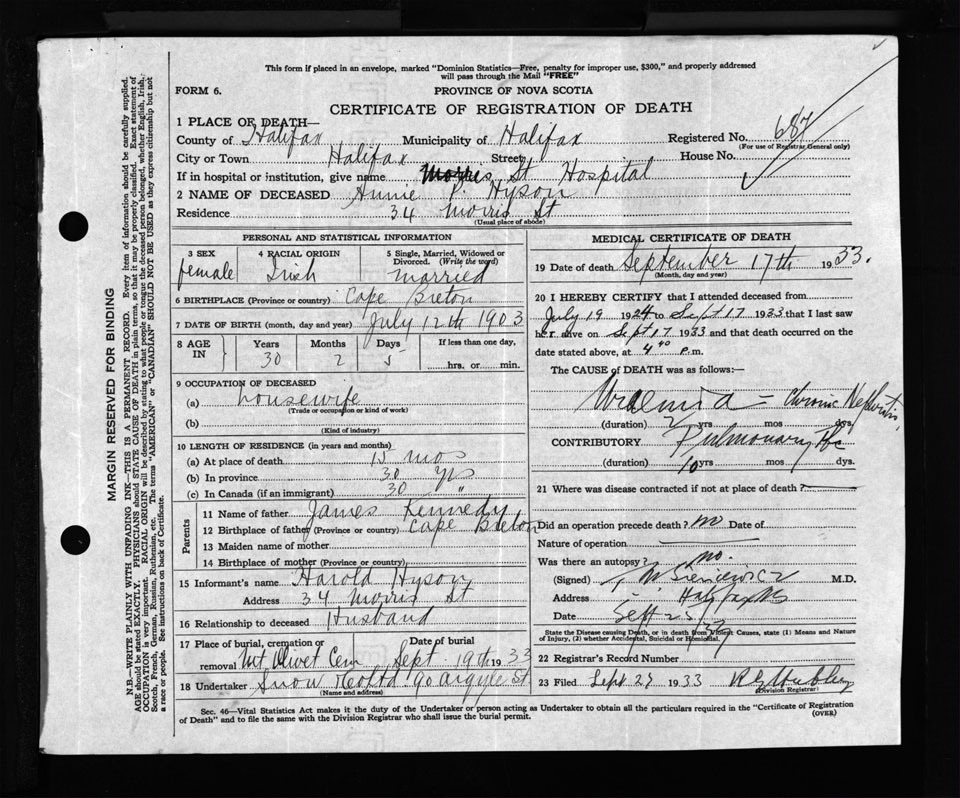 This form if placed in an envelope, marked "Dominion Statistics—Free, penalty for improper use, $300," and properly addressed
will pass through the Mail "FREE"
FORM 6.
PROVINCE OF NOVA SCOTIA
CERTIFICATE OF REGISTRATION OF DEATH
1 PLACE OF DEATH—
County of Halifax Municipality of Halifax Registered No. 687
(For use of Registrar General only)
City or Town Halifax Street House No.
If in hospital or institution, give name Morris St Hospital
2 NAME OF DECEASED Annie P. Hyson
Residence 34 Morris St
(Usual place of abode)
PERSONAL AND STATISTICAL INFORMATION
3 SEX 4 RACIAL ORIGIN 5 Single, Married, Widowed or
Divorced. (Write the word)
female Irish married
6 BIRTHPLACE (Province or country) Cape Breton
7 DATE OF BIRTH (month, day and year) July 12th 1903
8 AGE IN Years Months Days If less than one day,
30 2 5 hrs. or min.
9 OCCUPATION OF DECEASED
(a) housewife
(Trade or occupation or kind of work)
(b)
(Kind of industry)
10 LENGTH OF RESIDENCE (in years and months)
(a) At place of death 15 mos
(b) In province 30 yrs
(c) In Canada (if an immigrant) 30 "
Parents
11 Name of father James Kennedy
12 Birthplace of father (Province or country) Cape Breton
13 Maiden name of mother
14 Birthplace of mother (Province or country)
15 Informant's name Harold Hyson
Address 34 Morris St
16 Relationship to deceased Husband
17 Place of burial, cremation or Date of burial
removal Mt Olivet Cem Sept 19th 1933
18 Undertaker Snow & Co Ltd 90 Argyle St
(Name and address)
MEDICAL CERTIFICATE OF DEATH
19 Date of death September 17th 1933.
(Month, day and year)
20 I HEREBY CERTIFY that I attended deceased from
July 19 1924 to Sept 17 1933 that I last saw
her alive on Sept 17 1933 and that death occurred on the
date stated above, at 4 40 p.m.
The CAUSE of DEATH was as follows:—
Uraemia = Chronic Nephritis
(duration) 2 yrs mos dys.
CONTRIBUTORY Pulmonary Tbc
(duration) 10 yrs mos dys.
21 Where was disease contracted if not at place of death?
Did an operation precede death? no Date of
Nature of operation
Was there an autopsy? no.
(Signed) M Sieniewicz M.D.
Address Halifax NS
Date Sept 23/33
State the Disease causing Death, or in death from Violent Causes, state (1) Means and Nature
of Injury, (2) whether Accidental, Suicidal or Homicidal.
22 Registrar's Record Number
23 Filed Sept 27 1933
(Division Registrar)
Sec. 46—Vital Statistics Act makes it the duty of the Undertaker or person acting as Undertaker to obtain all the particulars required in the "Certificate of Registration
of Death" and to file the same with the Division Registrar who shall issue the burial permit.
(OVER)
MARGIN RESERVED FOR BINDING
N.B.—WRITE PLAINLY WITH UNFADING INK—THIS IS A PERMANENT RECORD. Every item of information should be carefully supplied.
AGE should be stated EXACTLY. PHYSICIANS should STATE CAUSE OF DEATH in plain terms, so that it may be properly classified. Exact statement of
OCCUPATION is very important. RACIAL ORIGIN will be described by stating to what people or tongue the deceased person belonged, whether English, Irish,
Scotch, French, German, Russian, Ruthenian, etc. The terms "AMERICAN" or "CANADIAN" SHOULD NOT BE USED as they express citizenship but not
a race or people. See instructions on back of Certificate.